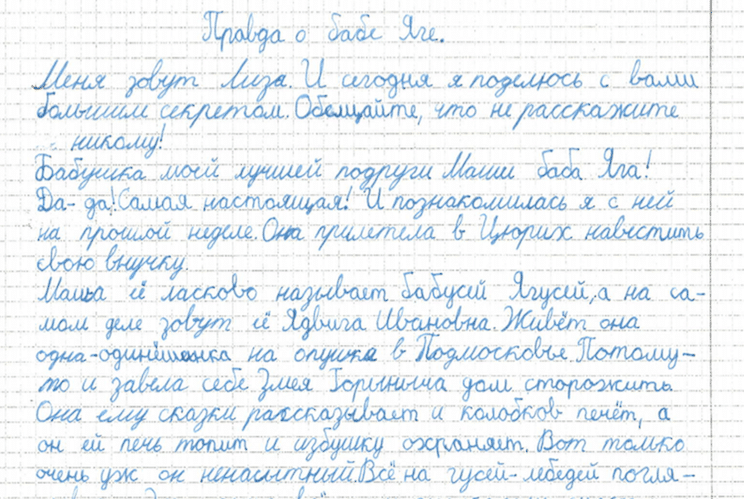 Правда о бабе Яге.
Меня зовут Лиза. И сегодня я поделюсь с вами
большим секретом. Обещайте, что не расскажите
никому!
Бабушка моей лучшей подруги Маши баба Яга!
Да-да! Самая настоящая! И познакомилась я с ней
на прошлой неделе. Она прилетела в Цюрих навестить
свою внучку.
Маша её ласково называет бабусей Ягусей, а на са-
мом деле зовут её Ядвига Ивановна. Живёт она
одна-одинёшенка на опушке в Подмосковье. Потому-
то и завела себе Змея Горыныча дом сторожить.
Она ему сказки рассказывает и колобков печёт, а
он ей печь топит и избушку охраняет. Вот только
очень уж он ненасытный. Всё на гусей-лебедей погля-